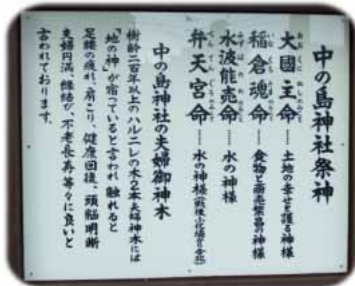 中の島神社祭神
大國主命……土地の幸せを護る神様
稲倉魂命……食物と商売繁昌の神様
水波能売命……水の神様
弁天宮命……水の神様
中の島神社の夫婦御神木
樹齢二百年以上のハルニレの木2本夫婦神木には
「地の神」が宿っていると言われ触れると
足腰の疲れ、肩こり、健康回復、頭脳明晰
夫婦円満、縁結び、不老長寿等々に良いと
言われております。